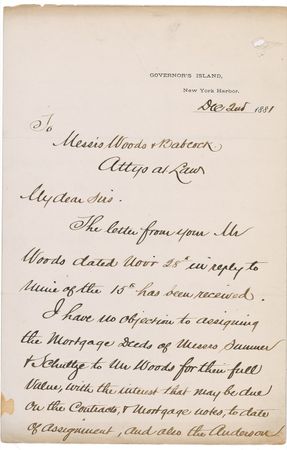 GOVERNOR'S ISLAND,
New York Harbor.
Dec 2nd 1881
To
Messrs Woods & Babcock
Attys at Law
My dear Sirs.
The letter from your Mr
Woods dated Novr 28th in reply to
mine of the 15th has been received.
I have no objection to assigning
the Mortgage Deeds of Messrs Sumner
& Schultze to Mr Woods for their full
Value, with the interest that may be due
on the Contracts, & Mortgage notes, to date
of Assignment, and also the Anderson